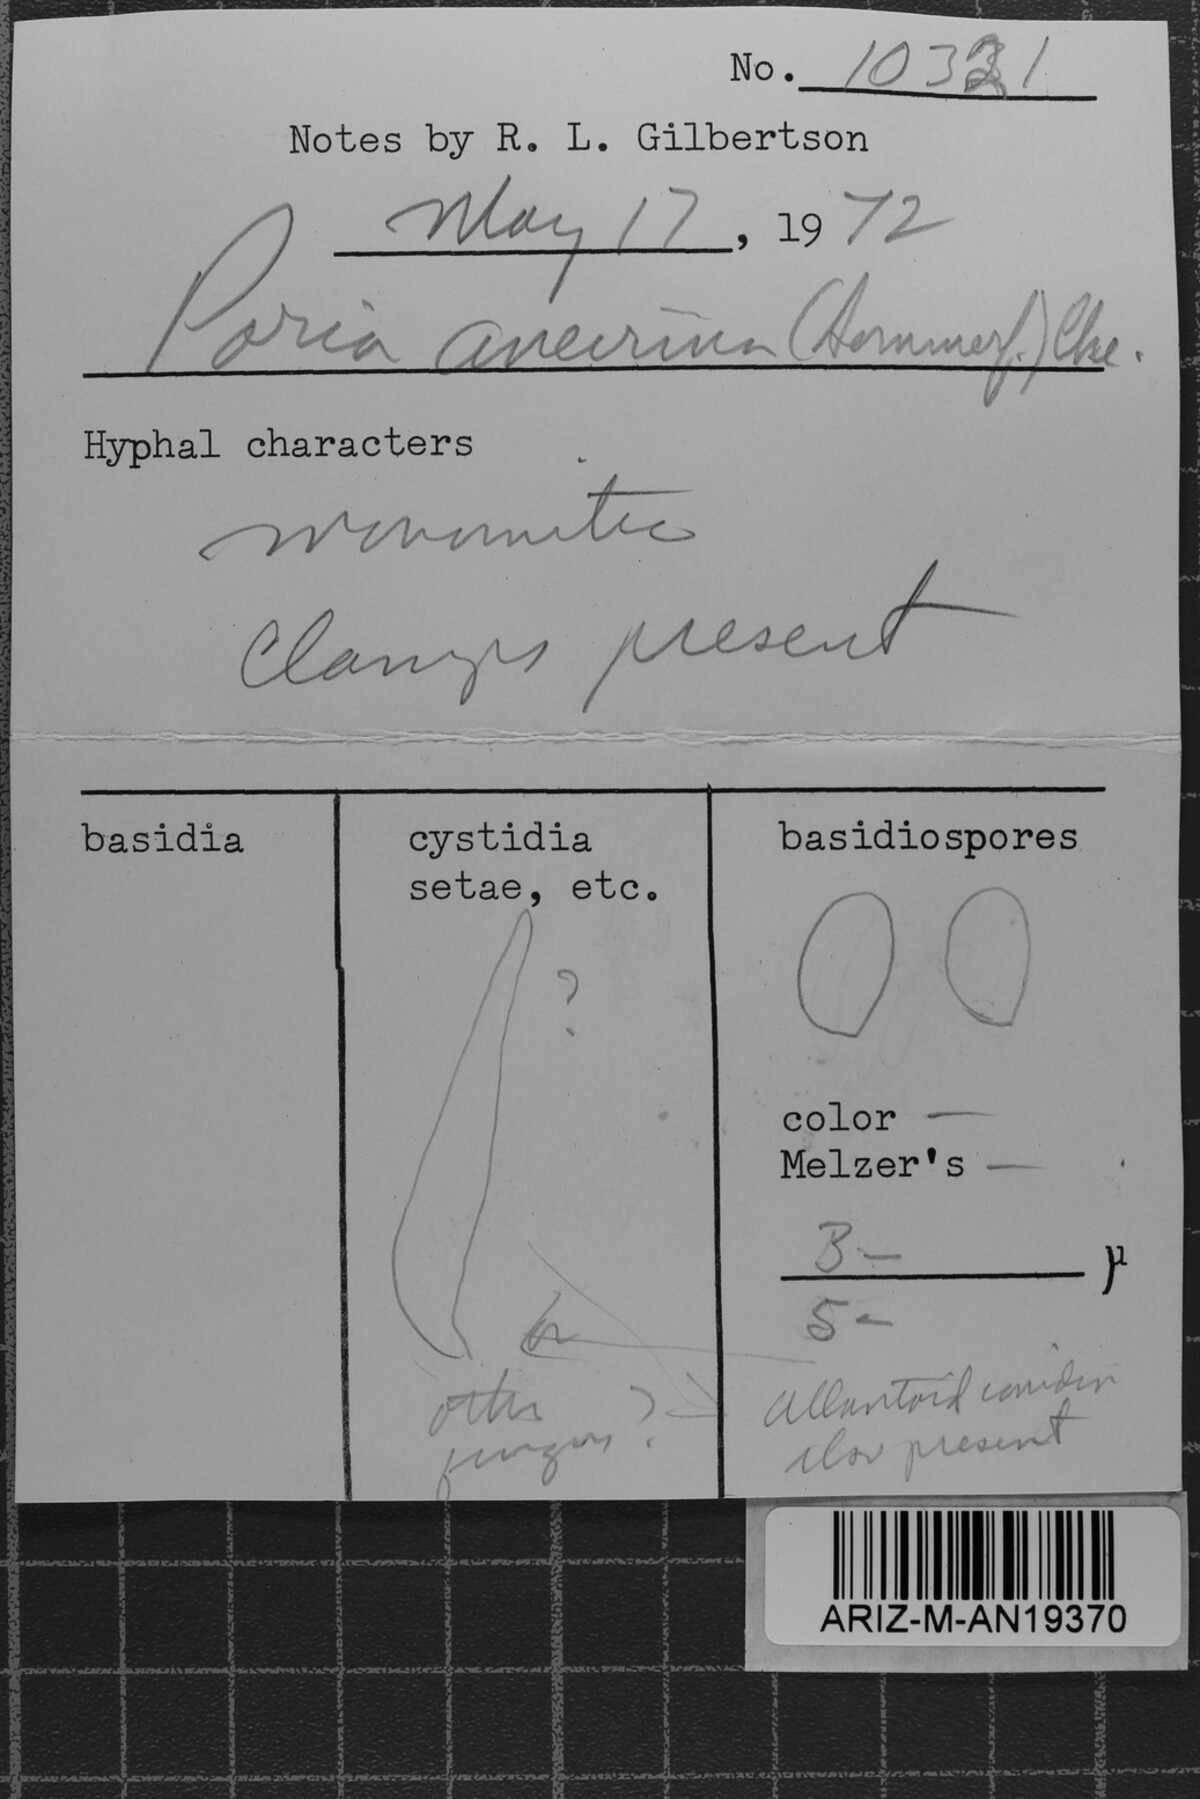 No. 10321
Notes by R. L. Gilbertson
May 17, 1972
Poria aneirina (Sommerf.) Cke.
Hyphal characters
monomitic
Clamps present
basidia
cystidia
setae, etc.
?
other
fungus?
basidiospores
color —
Melzer's —
3 — µ
5 -
allantoid conidia
also present
ARIZ-M-AN19370